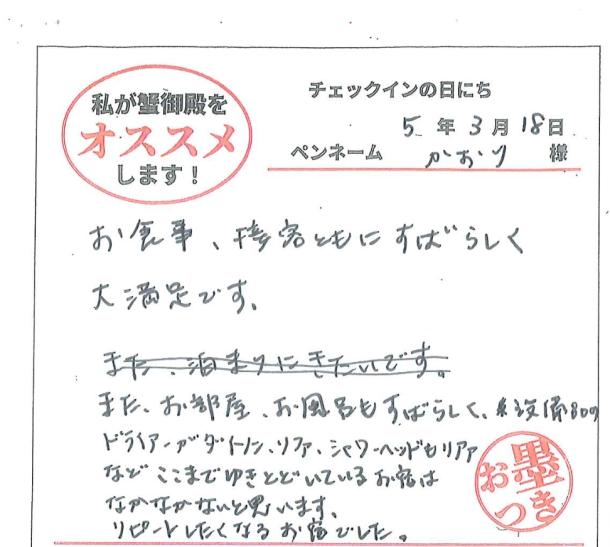 私が蟹御殿を
オススメ
します！
チェックインの日にち
5年3月18日
ペンネーム かおり 様
お食事、接客ともにすばらしく
大満足です。
また、泊まりにきたいです。
また、お部屋、お風呂もすばらしく、
ドライヤーがダイソン、ソファ、シャワーヘッドもリファ
などここまでゆきとどいているお宿は
なかなかないと思います。
リピートしたくなるお宿でした。
お墨つき